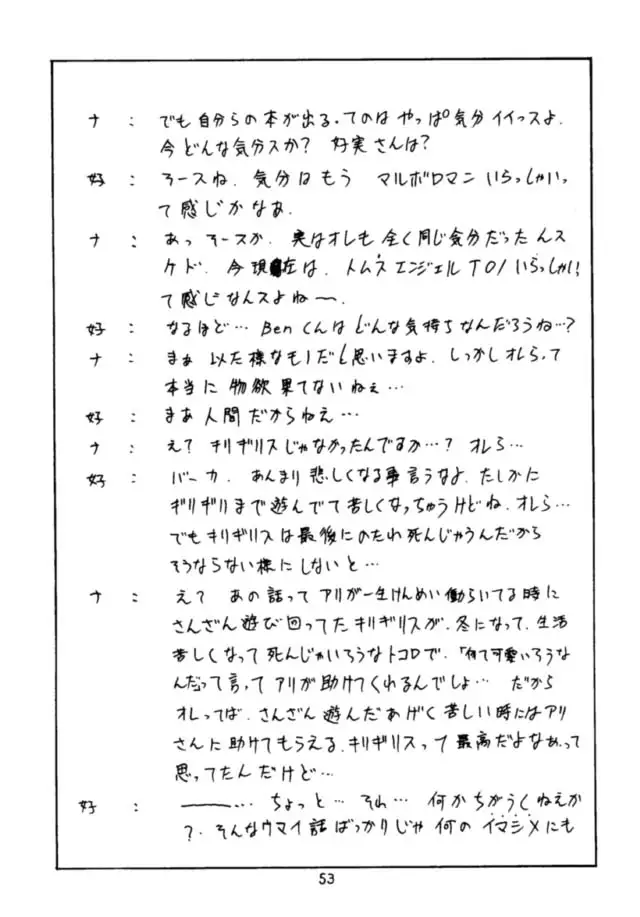 ナ : でも自分らの本が出る。てのは やっぱ気分 イイっスよ.
今 どんな気分スか? 好実さんは?
好 : そースね. 気分はもう マルボロマン いらっしゃいっ
て感じかなぁ.
ナ : あっ そースか. 実はオレも 全く同じ気分だったんス
ケド. 今現在は. トムネ エンジェル TO! いらっしゃい
て感じなんスよねー.
好 : なるほど… Benくんは どんな気持ちなんだろうね…?
ナ : まぁ 以た様なモノだと思いますよ. しっかしオレらって
本当に 物欲 果てないねぇ…
好 : まあ 人間だからねえ…
ナ : え? キリギリスじゃなかったんですか…? オレら…
好 : バーカ. あんまり悲しくなる事言うなよ. たしかに
ギリギリまで遊んでて苦しくなっちゃうけどね. オレら…
でもキリギリスは最後にのたれ死んじゃうんだから
そうならない様にしないと…
ナ : え? あの話って アリが一生けんめい働らいてる時に
さんざん遊び回ってたキリギリスが. 冬になって. 生活
苦しくなって死んじゃいそうなトコロで. 「何て可愛いそうな
んだ」って言って アリが助けてくれるんでしょ… だから
オレってば. さんざん遊んだあげく苦しい時にはアリ
さんに助けてもらえる. キリギリスって最高だよなぁって
思ってたんだけど…
好 : ———… ちょっと… それ… 何かちがうくねえか
?. そんなウマイ話ばっかりじゃ 何のイマシメにも
53